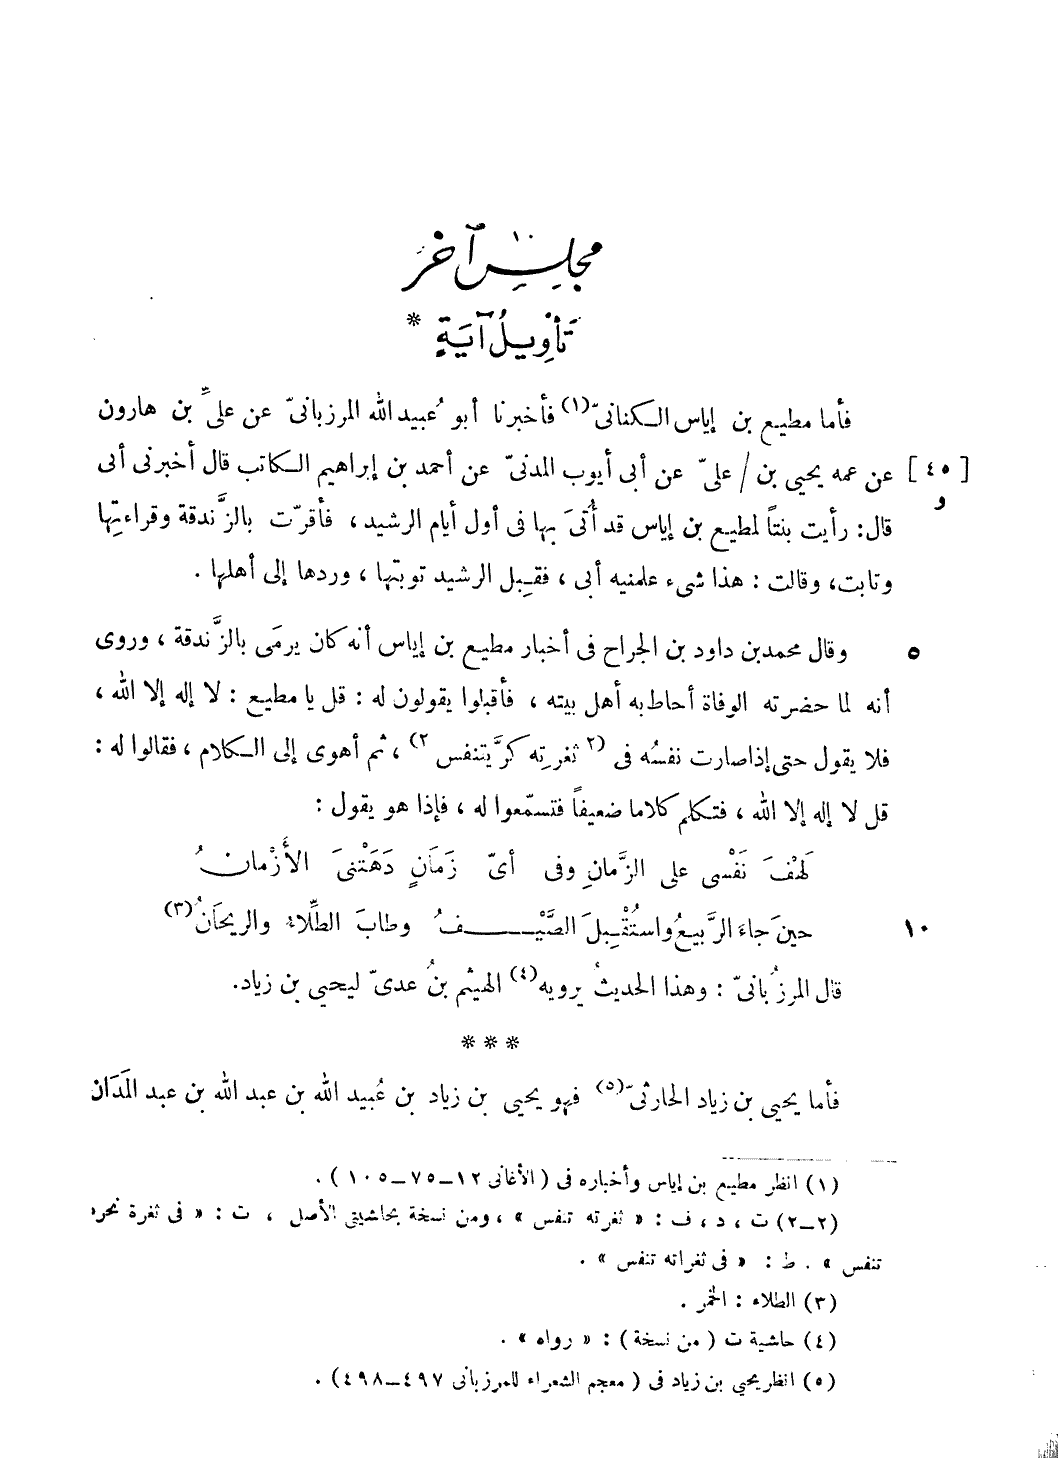 ١٠
مجلس آخر
تأويل آية *
فأما مطيع بن إياس الكنانىّ(١) فأخبرنا أبو عُبيد الله المرزبانىّ عن علىِّ بن هارون
[٤٥] عن عمه يحيى بن / علىّ عن أبى أيوب المدنىّ عن أحمد بن إبراهيم الكاتب قال أخبرنى أبى
و
قال: رأيت بنتاً لمطيع بن إياس قد أُتىَ بها فى أول أيام الرشيد، فأقرّت بالزَّندقة وقراءتِها
وتابت، وقالت : هذا شىء علمنيه أبى ، فقبِل الرشيد توبتها ، وردها إلى أهلها .
٥ وقال محمد بن داود بن الجراح فى أخبار مطيع بن إياس أنه كان يرمَى بالزَّندقة ، وروى
أنه لما حضرته الوفاة أحاط به أهل بيته ، فأقبلوا يقولون له : قل يا مطيع : لا إله إلا الله ،
فلا يقول حتى إذا صارت نفسُه فى (٢ ثغرتِه كرَّ يتنفس ٢) ، ثم أهوى إلى الكلام ، فقالوا له :
قل لا إله إلا الله ، فتكلم كلاما ضعيفاً فتسمّعوا له ، فإذا هو يقول :
لَهْفَ نَفْسى على الزَّمانِ وفى أىّ زَمَانٍ دَهَتْنىَ الأزْمانُ
١٠ حينَ جاءَ الرَّبيعُ واستُقْبِلَ الصَّيْـفُ وطابَ الطِّلاءُ والريحَانُ(٣)
قال المرزُبانىّ : وهذا الحديثُ يرويه(٤) الهيثم بنُ عدىّ ليحيى بن زياد.
* * *
فأما يحيى بن زياد الحارثىّ(٥) فهو يحيى بن زياد بن عُبيد الله بن عبد الله بن عبد المَدَان
(١) انظر مطيع بن إياس وأخباره فى ( الأغانى ١٢ــ٧٥ــ١٠٥ ) .
(٢ــ٢) ت ، د ، ف : « ثغرته تنفس » ، ومن نسخة بحاشيتى الأصل ، ت : « فى ثغرة نحره
تنفس » . ط : « فى ثغراته تنفس » .
(٣) الطلاء : الخمر .
(٤) حاشية ت ( من نسخة ) : « رواه » .
(٥) انظر يحيى بن زياد فى ( معجم الشعراء للمرزبانى ٤٩٧ــ٤٩٨) .